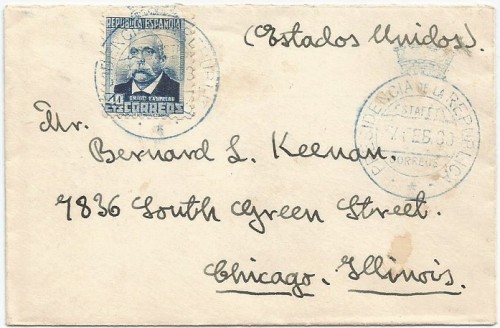 REPUBLICA ESPAÑOLA
EMILIO CASTELAR
40 CTS CORREOS
(Estados Unidos)
PRESIDENCIA DE LA REPUBLICA
ESTAFETA
FEB
CORREOS
Mr.
Bernard L. Keenan.
7836 South Green Street.
Chicago. Illinois.